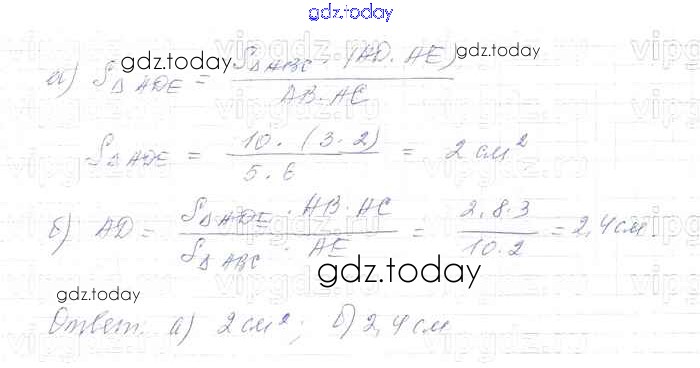 gdz.today
а) S△ADE = S△ABC · (AD · AE) / AB · AC
gdz.today gdz.today
S△ADE = 10 · (3 · 2) / 5 · 6 = 2 см²
б) AD = S△ADE · AB · AC / S△ABC · AE = 2,8·3 / 10·2 = 2,4 см.
gdz.today
gdz.today
Ответ: а) 2 см²; б) 2,4 см